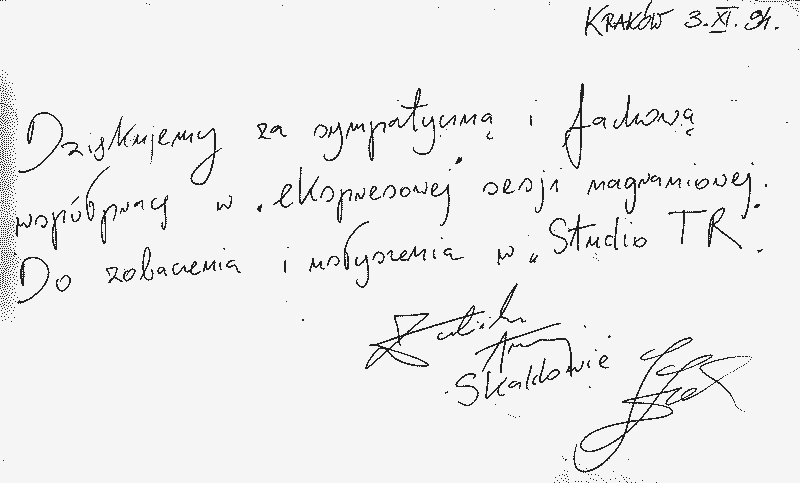 KRAKÓW 3.XI.94.
Dziękujemy za sympatyczną i fachową
współpracę w "ekspresowej" sesji nagraniowej.
Do zobaczenia i usłyszenia w "Studio TR".
Skaldowie